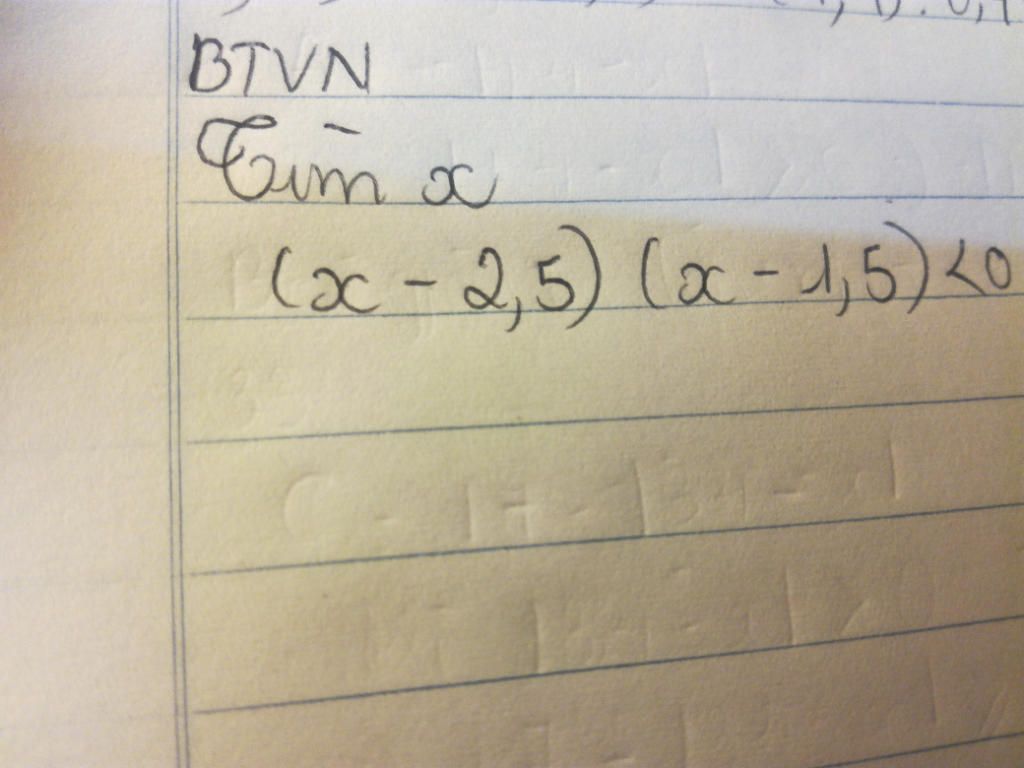 BTVN
Tìm x
(x - 2,5) (x - 1,5) < 0